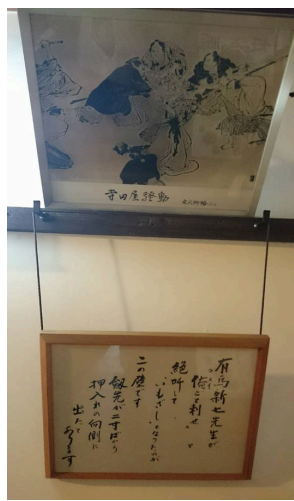 寺田屋騒動
有馬新七先生が
俺ごと刺せ と
絶叫して
いもざしとなったのが
この壁です
剣先が二寸ばかり
押入れの向側に
出て